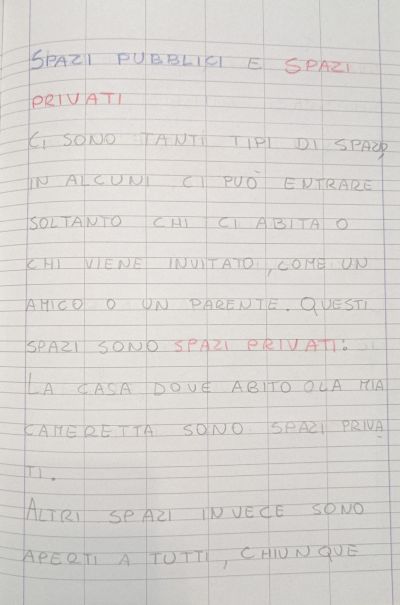 SPAZI PUBBLICI E SPAZI
PRIVATI
CI SONO TANTI TIPI DI SPAZI,
IN ALCUNI CI PUÒ ENTRARE
SOLTANTO CHI CI ABITA O
CHI VIENE INVITATO, COME UN
AMICO O UN PARENTE. QUESTI
SPAZI SONO SPAZI PRIVATI:
LA CASA DOVE ABITO O LA MIA
CAMERETTA SONO SPAZI PRIVA
TI.
ALTRI SPAZI INVECE SONO
APERTI A TUTTI, CHIUNQUE